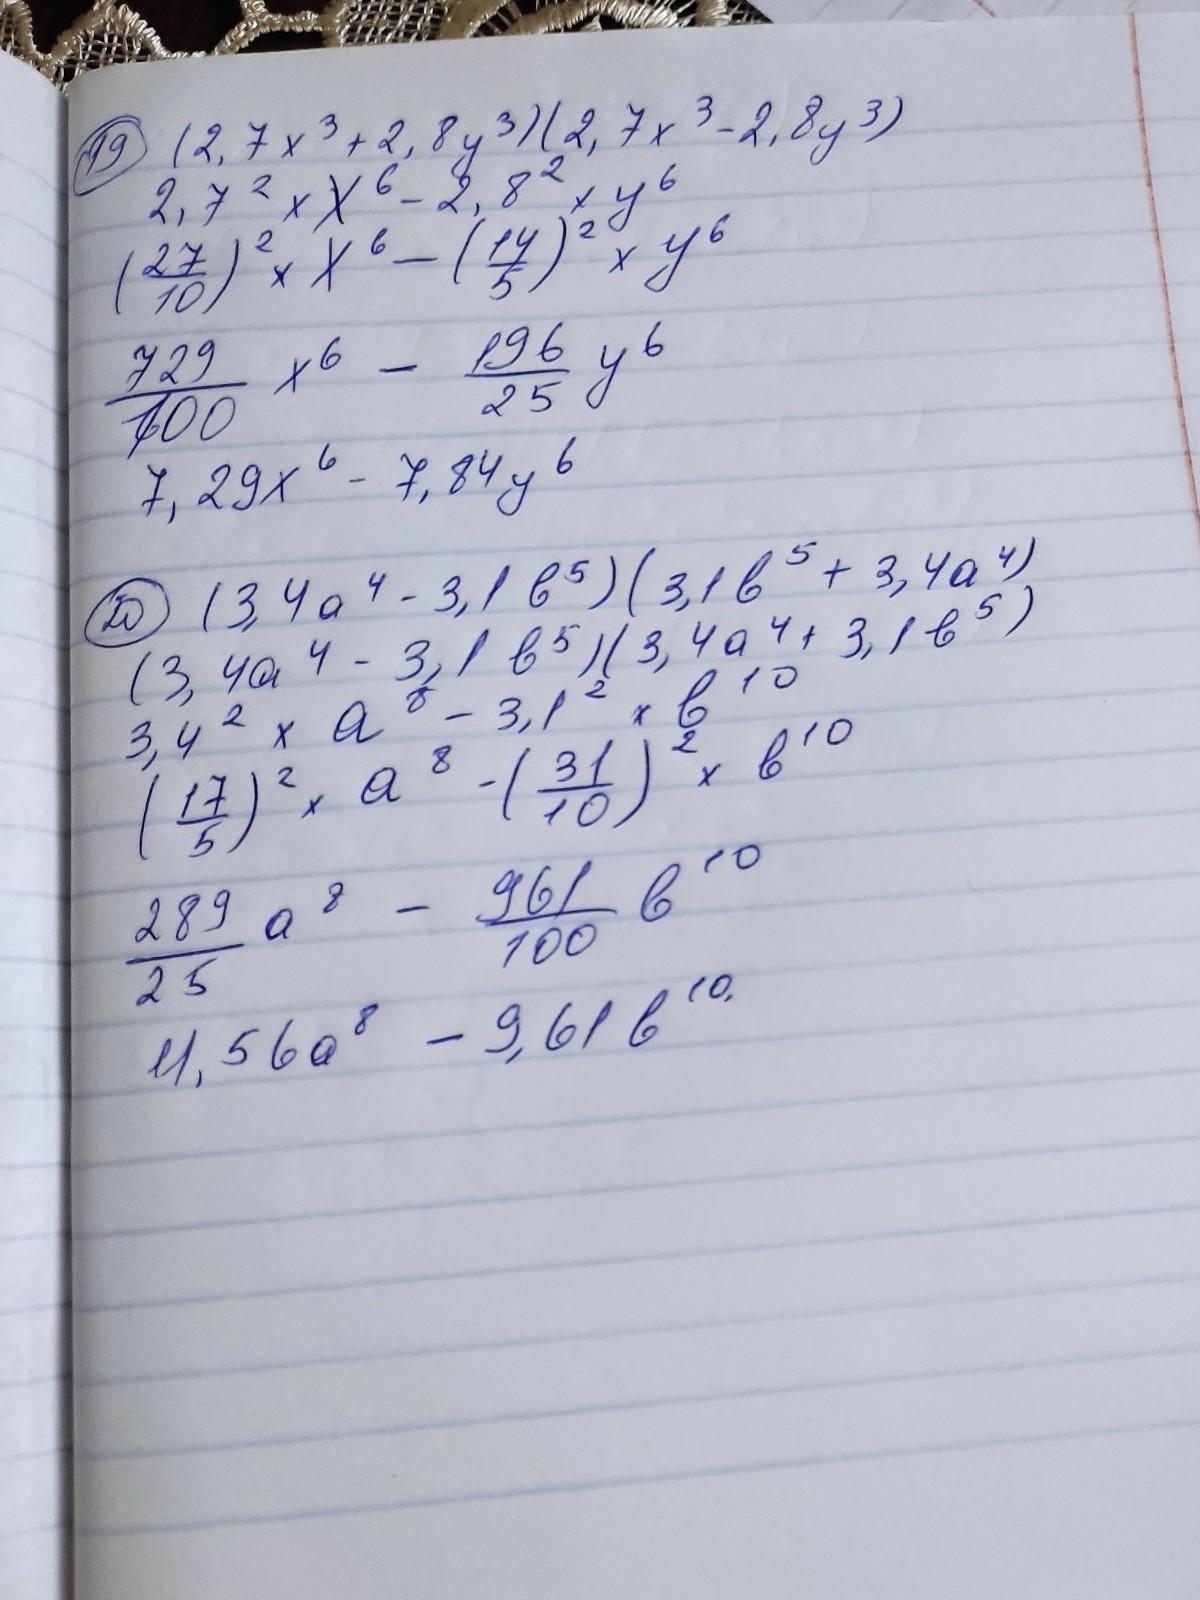 19 (2,7x³+2,8y³)(2,7x³-2,8y³)
2,7² × X⁶ - 2,8² × y⁶
(27/10)² × X⁶ - (14/5)² × y⁶
729/100 x⁶ - 196/25 y⁶
7,29x⁶ - 7,84y⁶
20 (3,4a⁴ - 3,1b⁵)(3,1b⁵ + 3,4a⁴)
(3,4a⁴ - 3,1b⁵)(3,4a⁴ + 3,1b⁵)
3,4² × a⁸ - 3,1² × b¹⁰
(17/5)² × a⁸ - (31/10)² × b¹⁰
289/25 a⁸ - 961/100 b¹⁰
11,56a⁸ - 9,61b¹⁰.